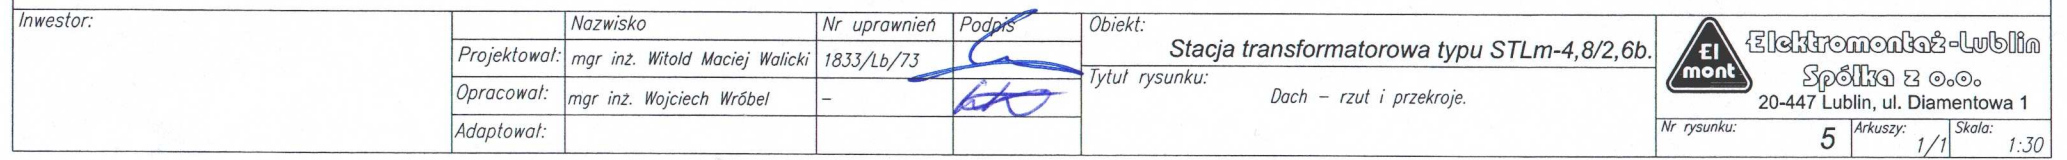 Inwestor:
Nazwisko
Nr uprawnień
Podpis
Projektował:
mgr inż. Witold Maciej Walicki
1833/Lb/73
Opracował:
mgr inż. Wojciech Wróbel
-
Adaptował:
Obiekt:
Stacja transformatorowa typu STLm-4,8/2,6b.
Tytuł rysunku:
Dach - rzut i przekroje.
El
mont
Elektromontaż-Lublin
Spółka z o.o.
20-447 Lublin, ul. Diamentowa 1
Nr rysunku:
5
Arkuszy:
1/1
Skala:
1:30